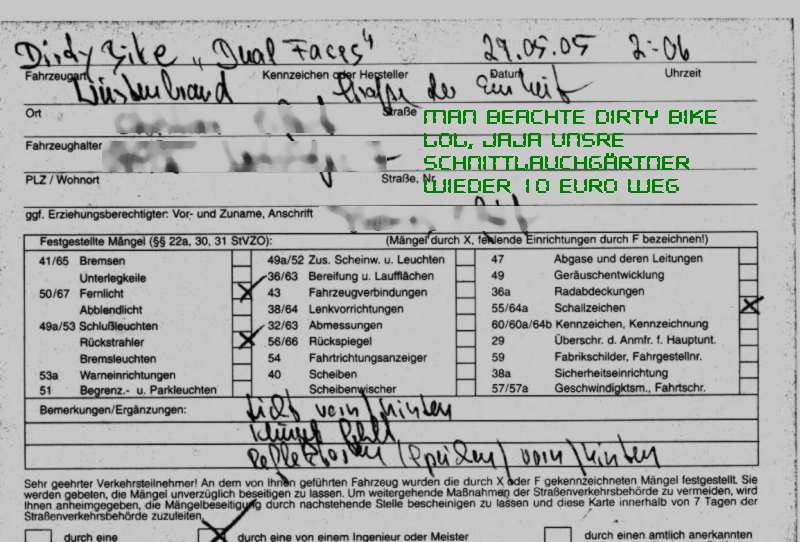 Dirdy Bike „Dual Faces“ 29.05.05 2:06
Fahrzeugart Kennzeichen oder Hersteller Datum Uhrzeit
Wüstenbrand Straße der Einheit
Ort Straße
MAN BEACHTE DIRTY BIKE
LOL, JAJA UNSRE
Fahrzeughalter
SCHNITTLAUCHGÄRTNER
PLZ / Wohnort Straße, Nr.
WIEDER 10 EURO WEG
ggf. Erziehungsberechtigter: Vor- und Zuname, Anschrift
Festgestellte Mängel (§§ 22a, 30, 31 StVZO): (Mängel durch X, fehlende Einrichtungen durch F bezeichnen!)
41/65 Bremsen 49a/52 Zus. Scheinw. u. Leuchten 47 Abgase und deren Leitungen
Unterlegkeile 36/63 Bereifung u. Laufflächen 49 Geräuschentwicklung
50/67 Fernlicht X 43 Fahrzeugverbindungen 36a Radabdeckungen
Abblendlicht 38/64 Lenkvorrichtungen 55/64a Schallzeichen X
49a/53 Schlußleuchten 32/63 Abmessungen 60/60a/64b Kennzeichen, Kennzeichnung
Rückstrahler X 56/66 Rückspiegel 29 Überschr. d. Anmfr. f. Hauptunt.
Bremsleuchten 54 Fahrtrichtungsanzeiger 59 Fabrikschilder, Fahrgestellnr.
53a Warneinrichtungen 40 Scheiben 38a Sicherheitseinrichtung
51 Begrenz.- u. Parkleuchten Scheibenwischer 57/57a Geschwindigktsm., Fahrtschr.
Bemerkungen/Ergänzungen: Licht vorn/hinten
Klingel fehlt
Reflektoren (Speichen) vorn/hinten
Sehr geehrter Verkehrsteilnehmer! An dem von Ihnen geführten Fahrzeug wurden die durch X oder F gekennzeichneten Mängel festgestellt. Sie
werden gebeten, die Mängel unverzüglich beseitigen zu lassen. Um weitergehende Maßnahmen der Straßenverkehrsbehörde zu vermeiden, wird
Ihnen anheimgegeben, die Mängelbeseitigung durch nachstehende Stelle bescheinigen zu lassen und diese Karte innerhalb von 7 Tagen der
Straßenverkehrsbehörde zuzuleiten.
durch eine X durch eine von einem Ingenieur oder Meister durch einen amtlich anerkannten